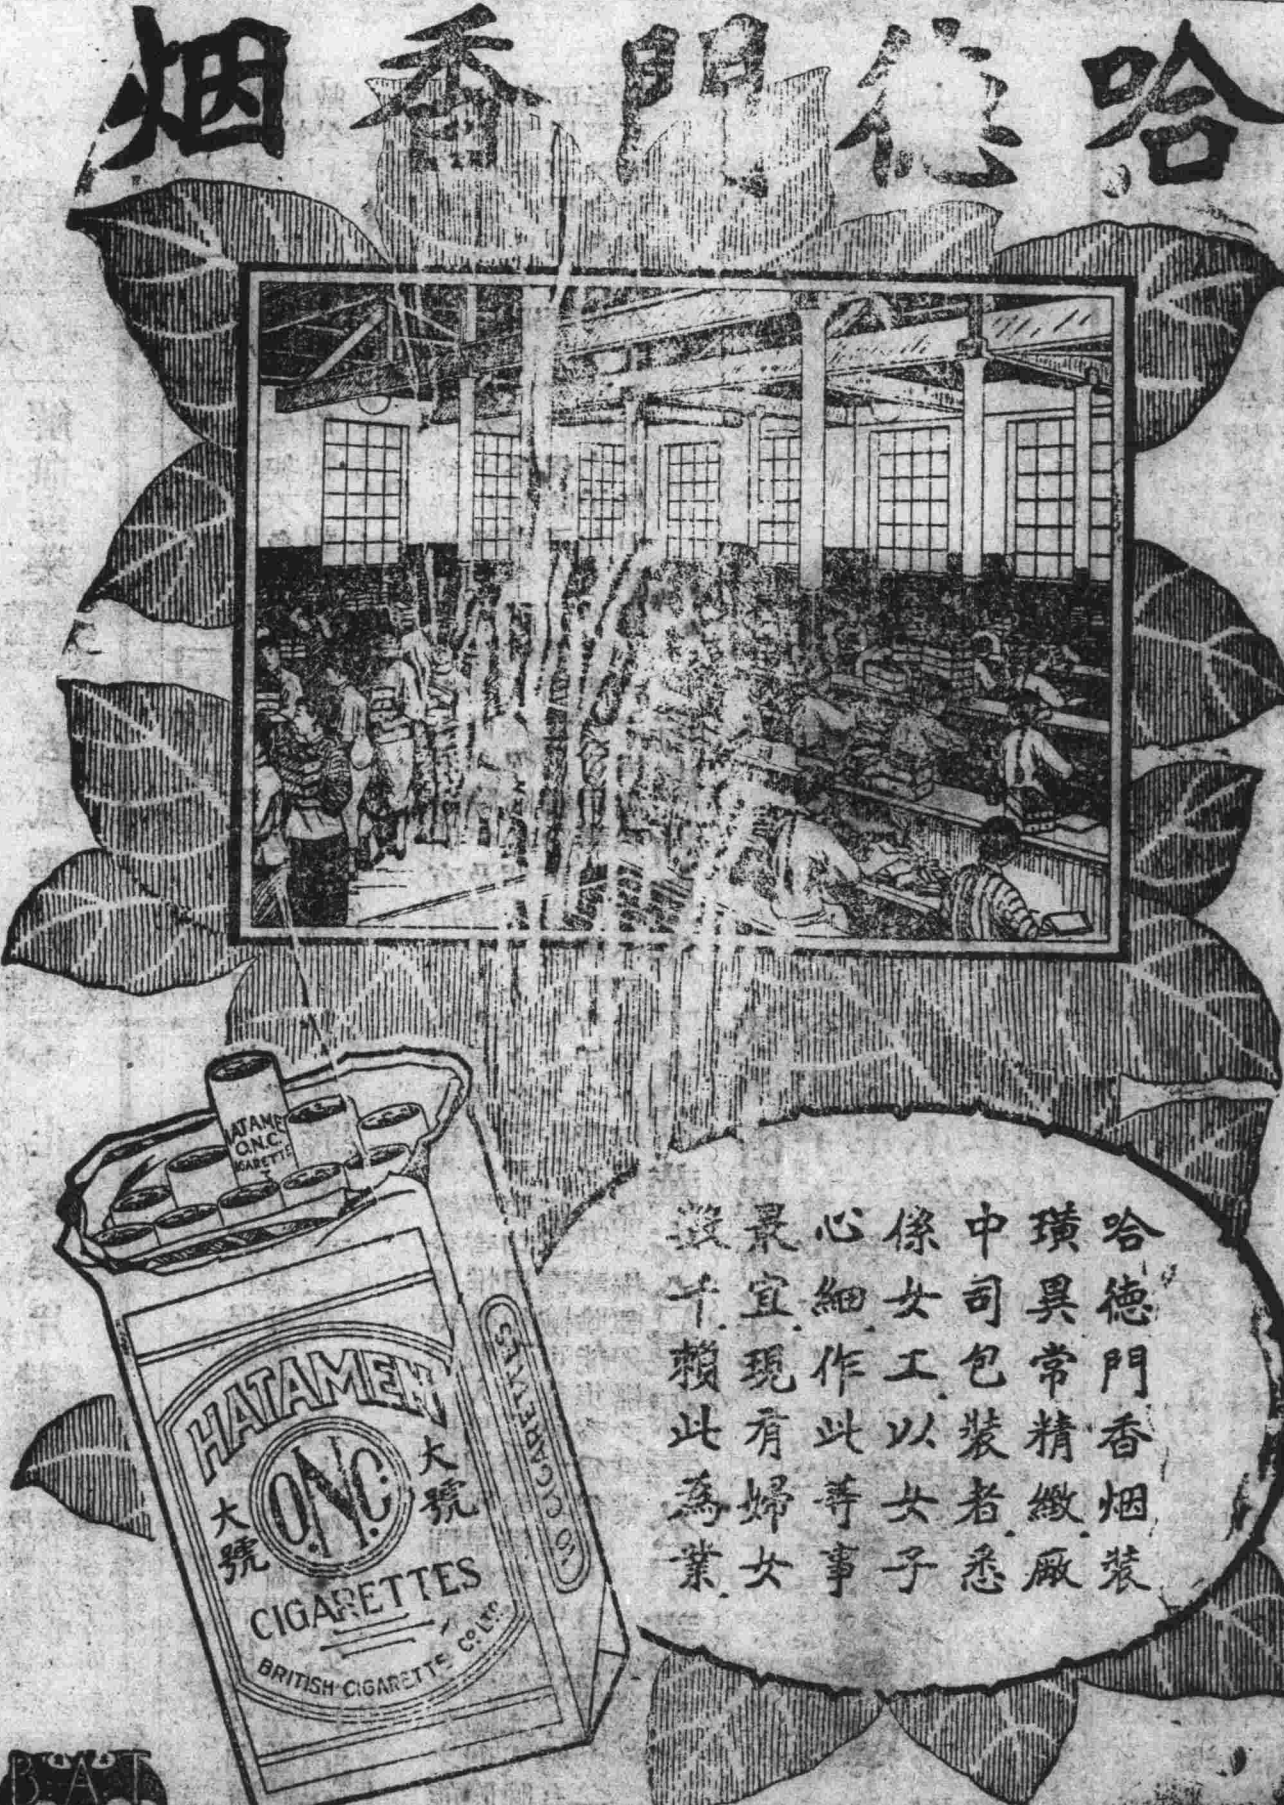 哈德門香烟
哈德門香烟裝
璜異常精緻廠
中司包裝者悉
係女工以女子
心細作此等事
最宜現有婦女
數千賴此為業
ATAME
O.N.C.
GARETTE
HATAMEN
O.N.C.
大號
大號
CIGARETTES
BRITISH CIGARETTE CO LTD
50 CIGARETTES
BAT